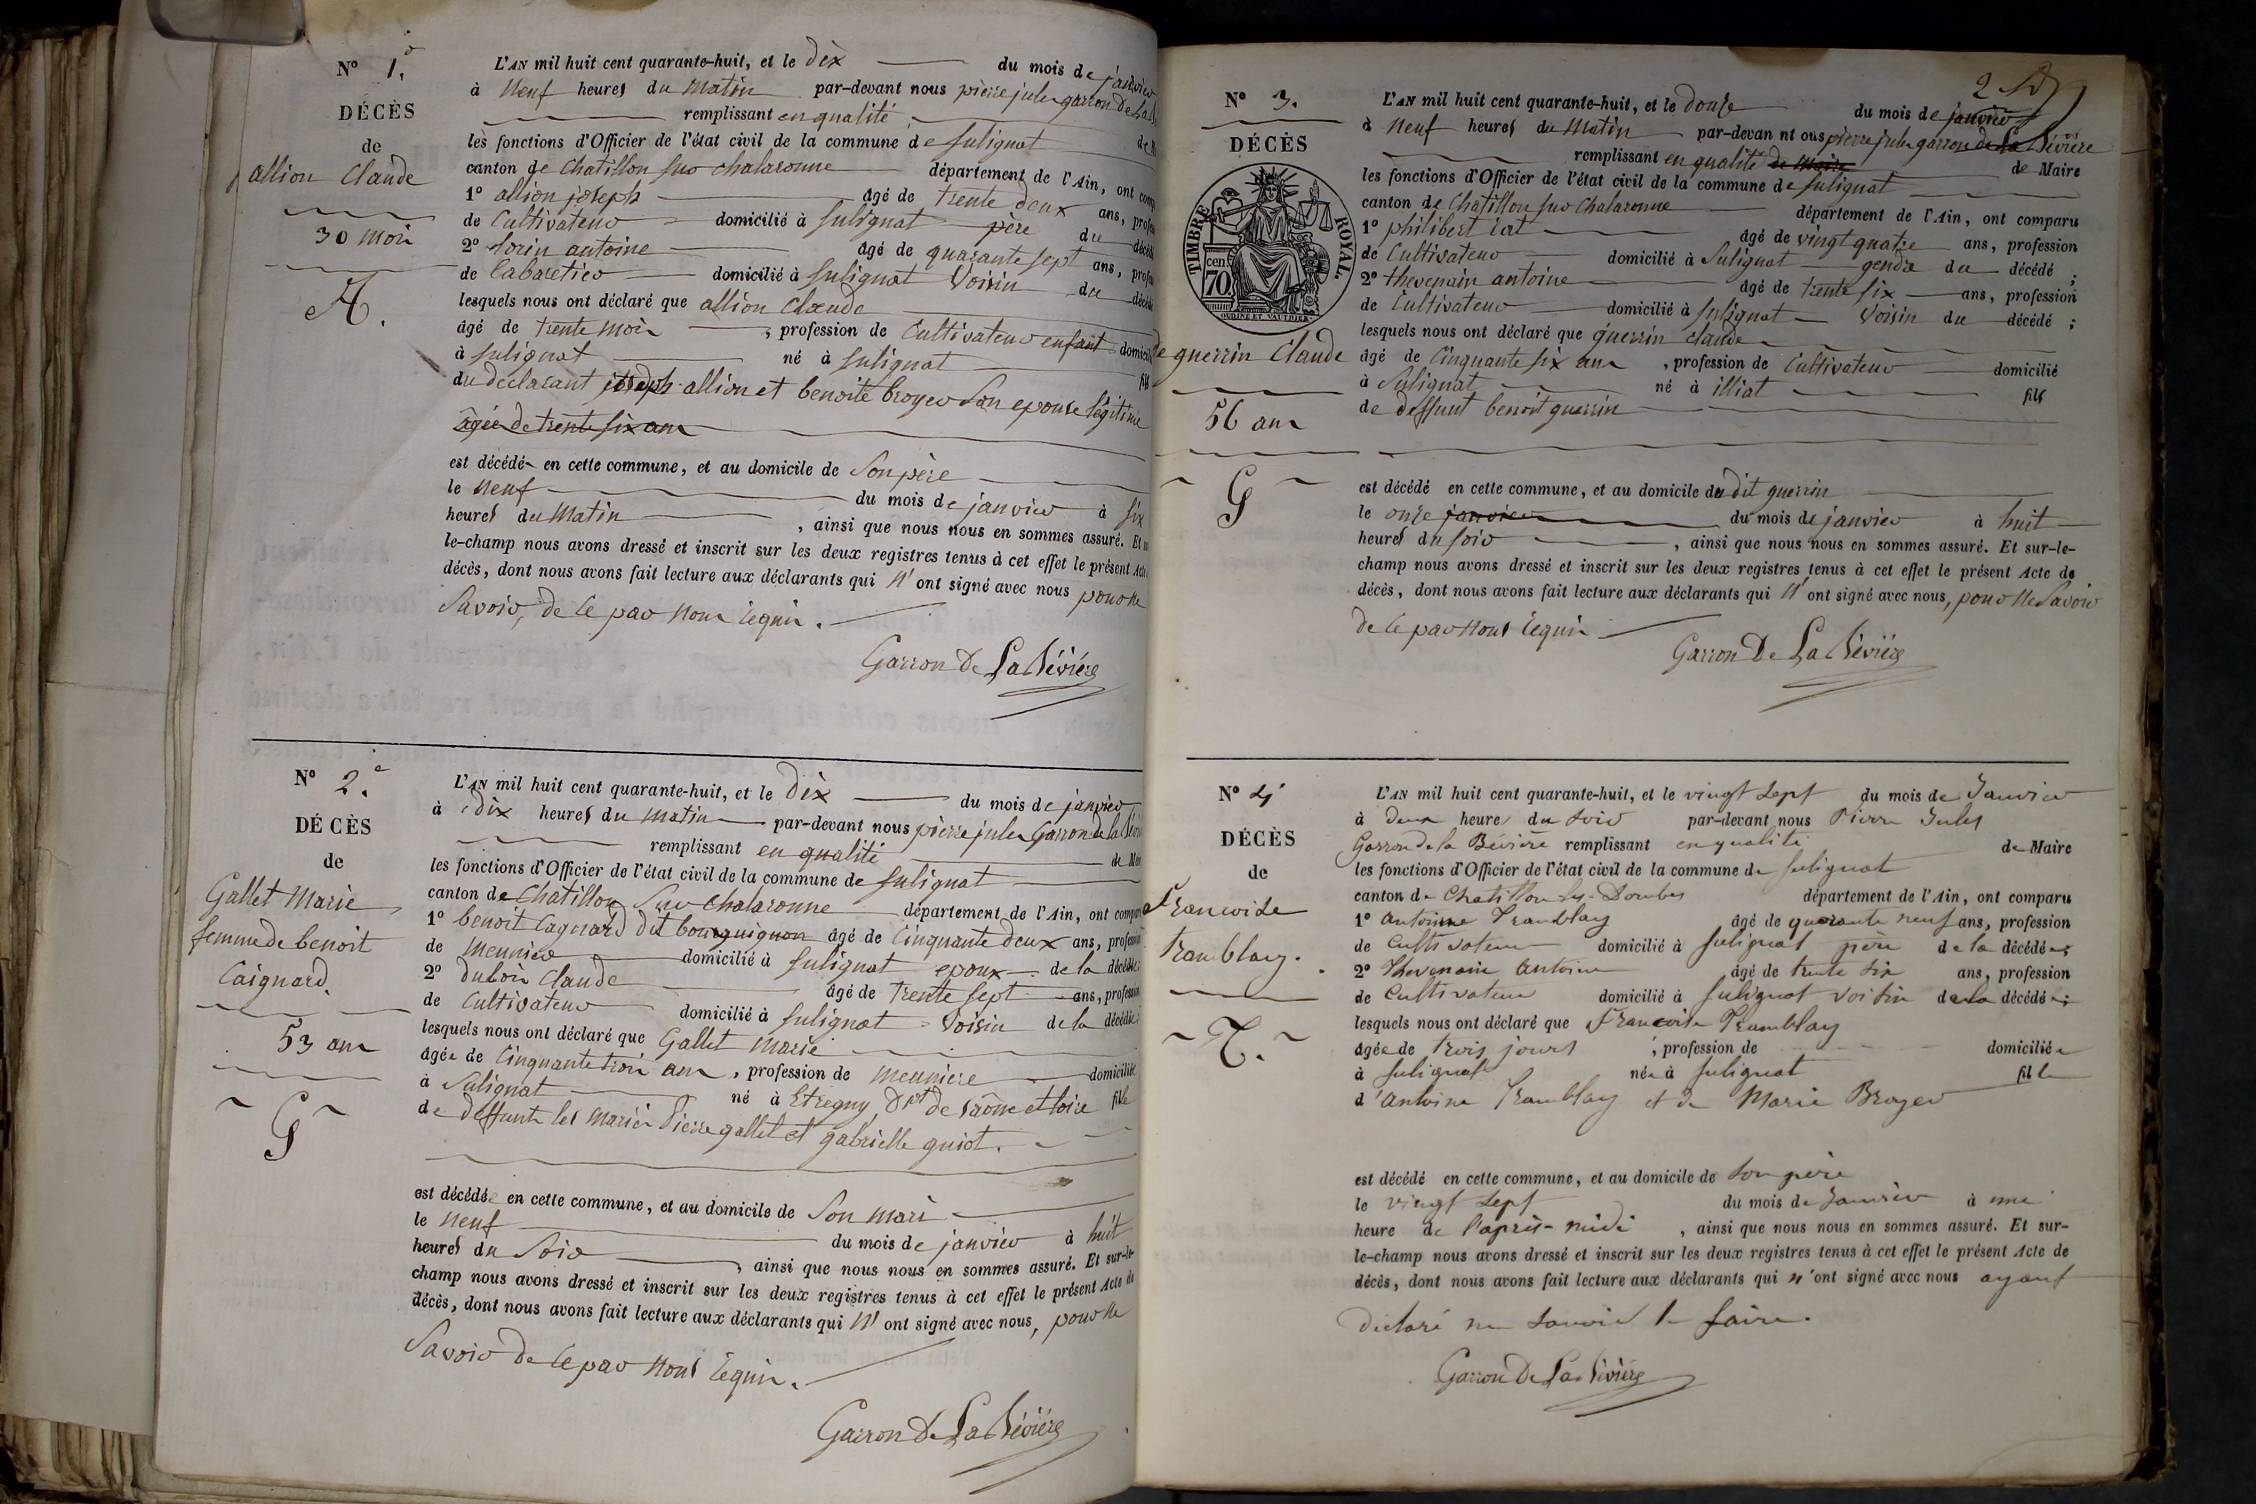 N° 1.°
DÉCÈS
de
allion Claude
30 mois
A.
L'AN mil huit cent quarante-huit, et le dix du mois de janvier
à neuf heures du matin par-devant nous pierre jules garron de La
remplissant en qualité
les fonctions d'Officier de l'état civil de la commune de Sulignat de M
canton de Chatillon sur chalaronne département de l'Ain, ont comp
1° allion joseph âgé de trente deux ans, profes
de Cultivateur domicilié à Sulignat père du décédé
2° Sorin antoine âgé de quarante sept ans, profes
de Cabaretier domicilié à Sulignat Voisin du décédé
lesquels nous ont déclaré que allion Claude
âgé de trente mois, profession de Cultivateur enfant domicilié
à Sulignat né à Sulignat fils
du déclarant joseph allion et benoite broyer Son epouse légitime
âgée de trente six ans
est décédé en cette commune, et au domicile de Son père
le neuf du mois de janvier à six
heures du Matin, ainsi que nous nous en sommes assuré. Et su
le-champ nous avons dressé et inscrit sur les deux registres tenus à cet effet le présent Acte
décès, dont nous avons fait lecture aux déclarants qui n' ont signé avec nous pour ne
Savoir, de ce par nous requis.
Garron De La Bévière
N° 2.e
DÉCÈS
de
Gallet Marie
femme de benoit
Caignard.
53 ans
G
L'AN mil huit cent quarante-huit, et le dix du mois de janvier
à dix heures du matin par-devant nous pierre jules Garron de la Bévi
remplissant en qualité de M
les fonctions d'Officier de l'état civil de la commune de Sulignat
canton de Chatillon Sur chalaronne département de l'Ain, ont comparu
1° benoit Cagnard dit bourguignon âgé de Cinquante deux ans, profession
de meunier domicilié à Sulignat epoux de la décédée;
2° dubois Claude âgé de trente sept ans, profession
de Cultivateur domicilié à Sulignat Voisin de la décédée;
lesquels nous ont déclaré que Gallet Marie
âgée de Cinquante trois ans, profession de meuniere domiciliée
à Sulignat né à Etregny, Dpt de Saône et loire fille
de deffunts les mariés Pierre gallet et gabrielle guiot.
est décédée en cette commune, et au domicile de Son mari
le neuf du mois de janvier à huit
heures du Soir, ainsi que nous nous en sommes assuré. Et sur-le-
champ nous avons dressé et inscrit sur les deux registres tenus à cet effet le présent Acte de
décès, dont nous avons fait lecture aux déclarants qui n' ont signé avec nous, pour ne
Savoir de ce par nous requis.
Garron De La Bévière
2
N° 3.
DÉCÈS
TIMBRE ROYAL.
cen. 70.
OUDINE ET VAUTHIER.
de guerrin Claude
56 ans
G
L'AN mil huit cent quarante-huit, et le douze du mois de janvier
à neuf heures du Matin par-devan nt ous pierre jules garron de La Bévière
remplissant en qualité de maire de Maire
les fonctions d'Officier de l'état civil de la commune de Sulignat
canton de Chatillon sur Chalaronne département de l'Ain, ont comparu
1° philibert âgé de vingt quatre ans, profession
de Cultivateur domicilié à Sulignat gendre du décédé;
2° thevenain antoine âgé de trente six ans, profession
de Cultivateur domicilié à Sulignat Voisin du décédé;
lesquels nous ont déclaré que guerrin claude
âgé de Cinquante six ans, profession de Cultivateur domicilié
à Sulignat né à illiat fils
de deffunt benoit guerrin
est décédé en cette commune, et au domicile du dit guerrin
le onze janvier du mois de janvier à huit
heures du Soir, ainsi que nous nous en sommes assuré. Et sur-le-
champ nous avons dressé et inscrit sur les deux registres tenus à cet effet le présent Acte de
décès, dont nous avons fait lecture aux déclarants qui n' ont signé avec nous, pour ne Savoir
de ce par nous requis
Garron De La Bévière
N° 4
DÉCÈS
de
Francoise
Tramblay.
T.
L'AN mil huit cent quarante-huit, et le vingt Sept du mois de Janvier
à deux heures du Soir par-devant nous Pierre Jules
Garron de la Bévière remplissant en qualité de Maire
les fonctions d'Officier de l'état civil de la commune de Sulignat
canton de Chatillon les Dombes département de l'Ain, ont comparu
1° Antoinne Tramblay âgé de quarante neuf ans, profession
de Cultivateur domicilié à Sulignat père de la décédée;
2° Thevenain Antoine âgé de trente six ans, profession
de Cultivateur domicilié à Sulignat voisin de la décédée;
lesquels nous ont déclaré que Francoise Tramblay
âgée de trois jours, profession de domiciliée
à Sulignat née à Sulignat fille
d'Antoine Tramblay et de Marie Broyer
est décédé en cette commune, et au domicile de Son père
le vingt Sept du mois de Janvier à une
heure de l'après-midi, ainsi que nous nous en sommes assuré. Et sur-
le-champ nous avons dressé et inscrit sur les deux registres tenus à cet effet le présent Acte de
décès, dont nous avons fait lecture aux déclarants qui n'ont signé avec nous ayant
déclaré ne savoir le faire.
Garron De La Bévière